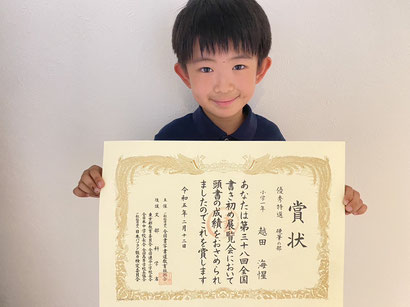 賞状
優秀特選 硬筆の部
小学一年 越田 海惺
あなたは第三十八回全国
書き初め展覧会において
頭書の成績をおさめられ
ましたのでこれを賞します
令和五年二月十二日
後援 文部科学省